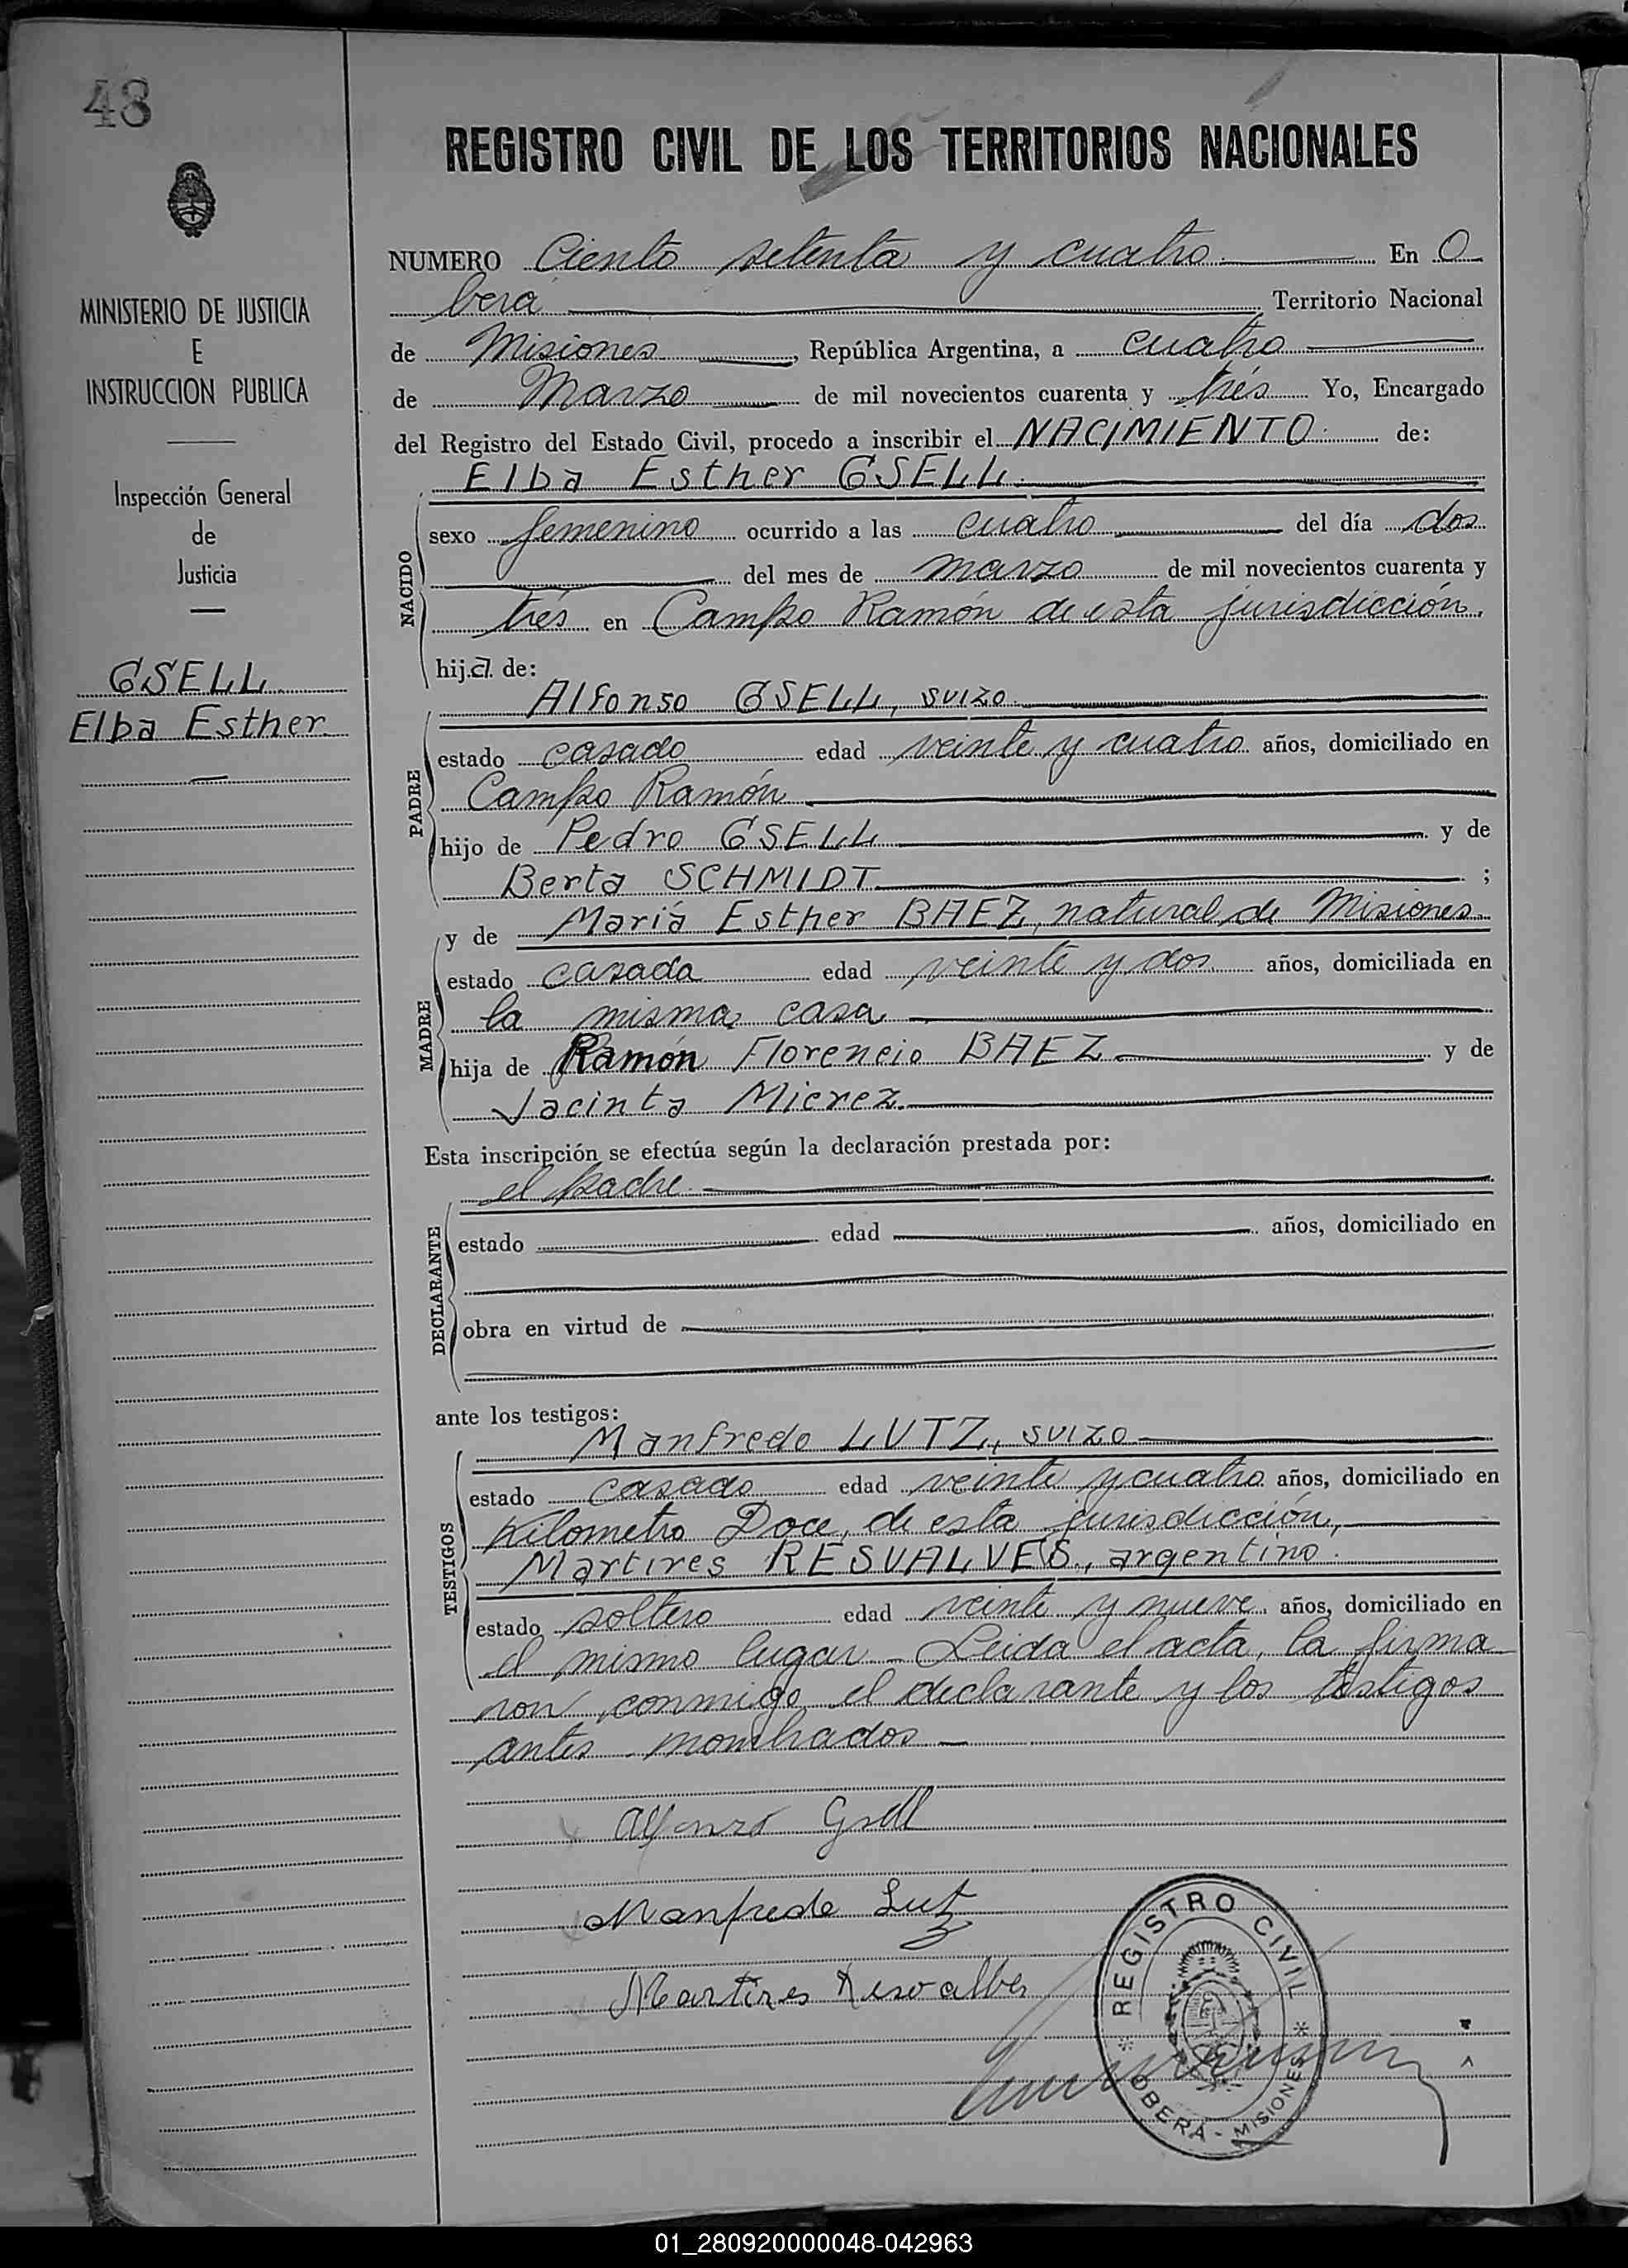 48
REGISTRO CIVIL DE LOS TERRITORIOS NACIONALES
MINISTERIO DE JUSTICIA
E
INSTRUCCION PUBLICA
Inspección General
de
Justicia
GSELL
Elba Esther
NUMERO Ciento setenta y cuatro En O
berá Territorio Nacional
de Misiones, República Argentina, a cuatro
de Marzo de mil novecientos cuarenta y trés Yo, Encargado
del Registro del Estado Civil, procedo a inscribir el NACIMIENTO de:
Elba Esther GSELL
NACIDO
sexo femenino ocurrido a las cuatro del día dos
del mes de marzo de mil novecientos cuarenta y
trés en Campo Ramón de esta jurisdicción,
hija de:
Alfonso GSELL, suizo
PADRE
estado casado edad veinte y cuatro años, domiciliado en
Campo Ramón
hijo de Pedro GSELL y de
Berta SCHMIDT ;
y de María Esther BAEZ, natural de Misiones
MADRE
estado casada edad veinte y dos años, domiciliada en
la misma casa
hija de Ramón Florencio BAEZ y de
Jacinta Mierez
Esta inscripción se efectúa según la declaración prestada por:
el padre
DECLARANTE
estado edad años, domiciliado en
obra en virtud de
ante los testigos:
Manfredo LUTZ, suizo
TESTIGOS
estado casado edad veinte y cuatro años, domiciliado en
Kilometro Doce, de esta jurisdicción,
Martires RESVALVES, argentino
estado soltero edad veinte y nueve años, domiciliado en
el mismo lugar - Leida el acta, la firma
ron conmigo el declarante y los testigos
antes nombrados
Alfonso Gsell
Manfredo Lutz
Martires
REGISTRO CIVIL
OBERÁ - MISIONES
01_280920000048-042963